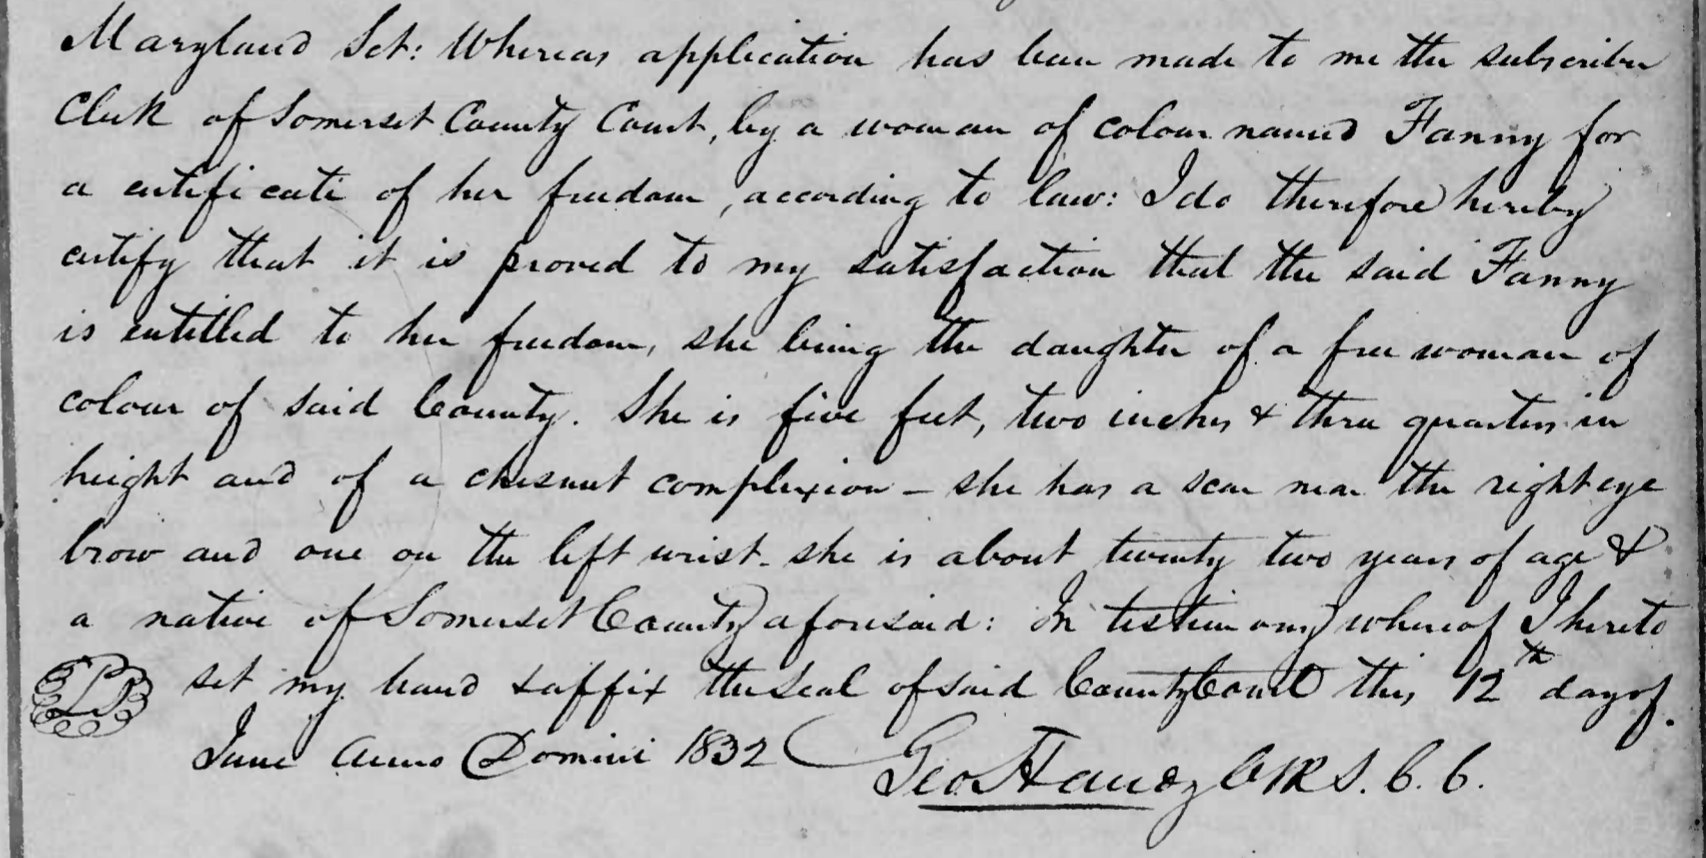 Maryland Sct: Whereas application has been made to me the subscriber
Clerk of Somerset County Court, by a woman of colour named Fanny for
a certificate of her freedom, according to law: I do therefore hereby
certify that it is proved to my satisfaction that the said Fanny
is entitled to her freedom, she being the daughter of a free woman of
colour of said County. She is five feet, two inches & three quarters in
height and of a chesnut complexion - she has a scar near the right eye
brow and one on the left wrist - she is about twenty two years of age &
a native of Somerset County aforesaid: In testimony whereof I hereto
LS set my hand & affix the Seal of said County Court this 12th day of
June Anno Domini 1832 Geo Handy Clk S. C. C.